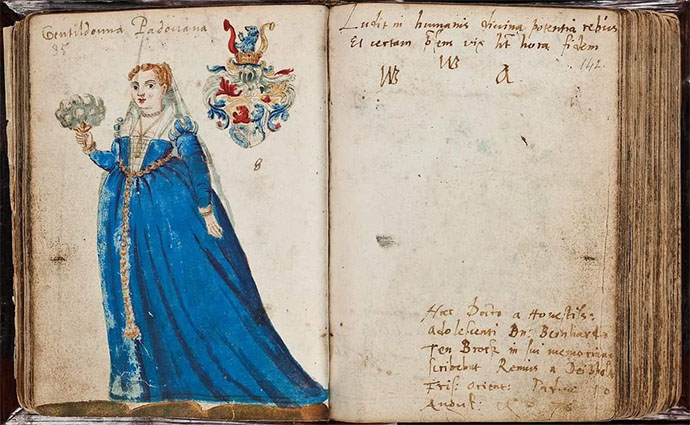 Gentildonna Padouana
95
8
Ludit in humanis divina potentia rebus
Et certam p̄sem vix ht hora fidem
142
W W A
Hæc Docto a Honestiss:
adolescenti Dn: Bernhardo
Ten Broeck in sui memoriam
scribebat Remus a
Fris: Orient:
August: